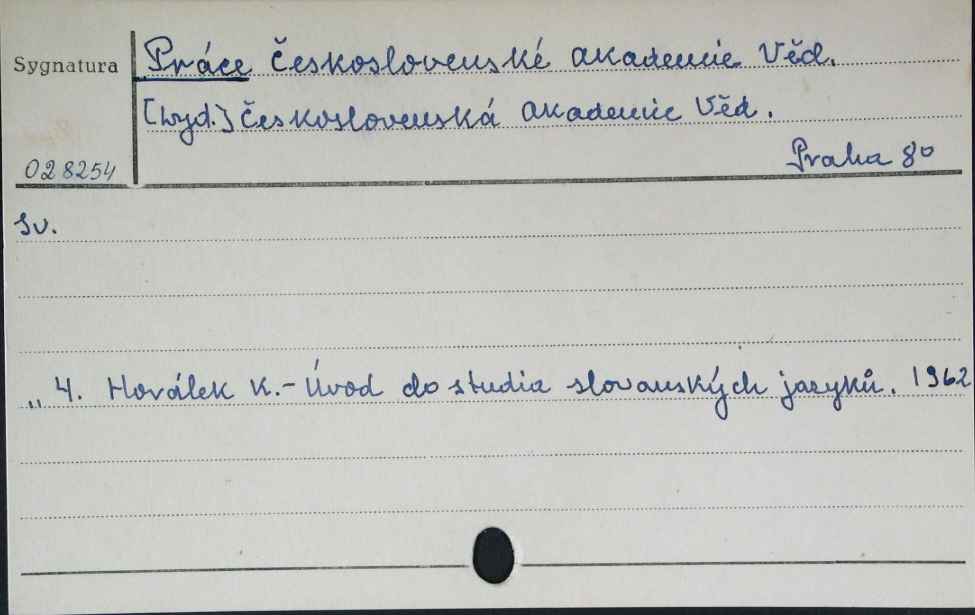 Sygnatura
Práce Československé Akademie Věd.
[Wyd.] Československá Akademie Věd.
Praha 8°
028254
Sv.
„ 4. Horálek K. - Úvod do studia slovanských jazyků. 1962